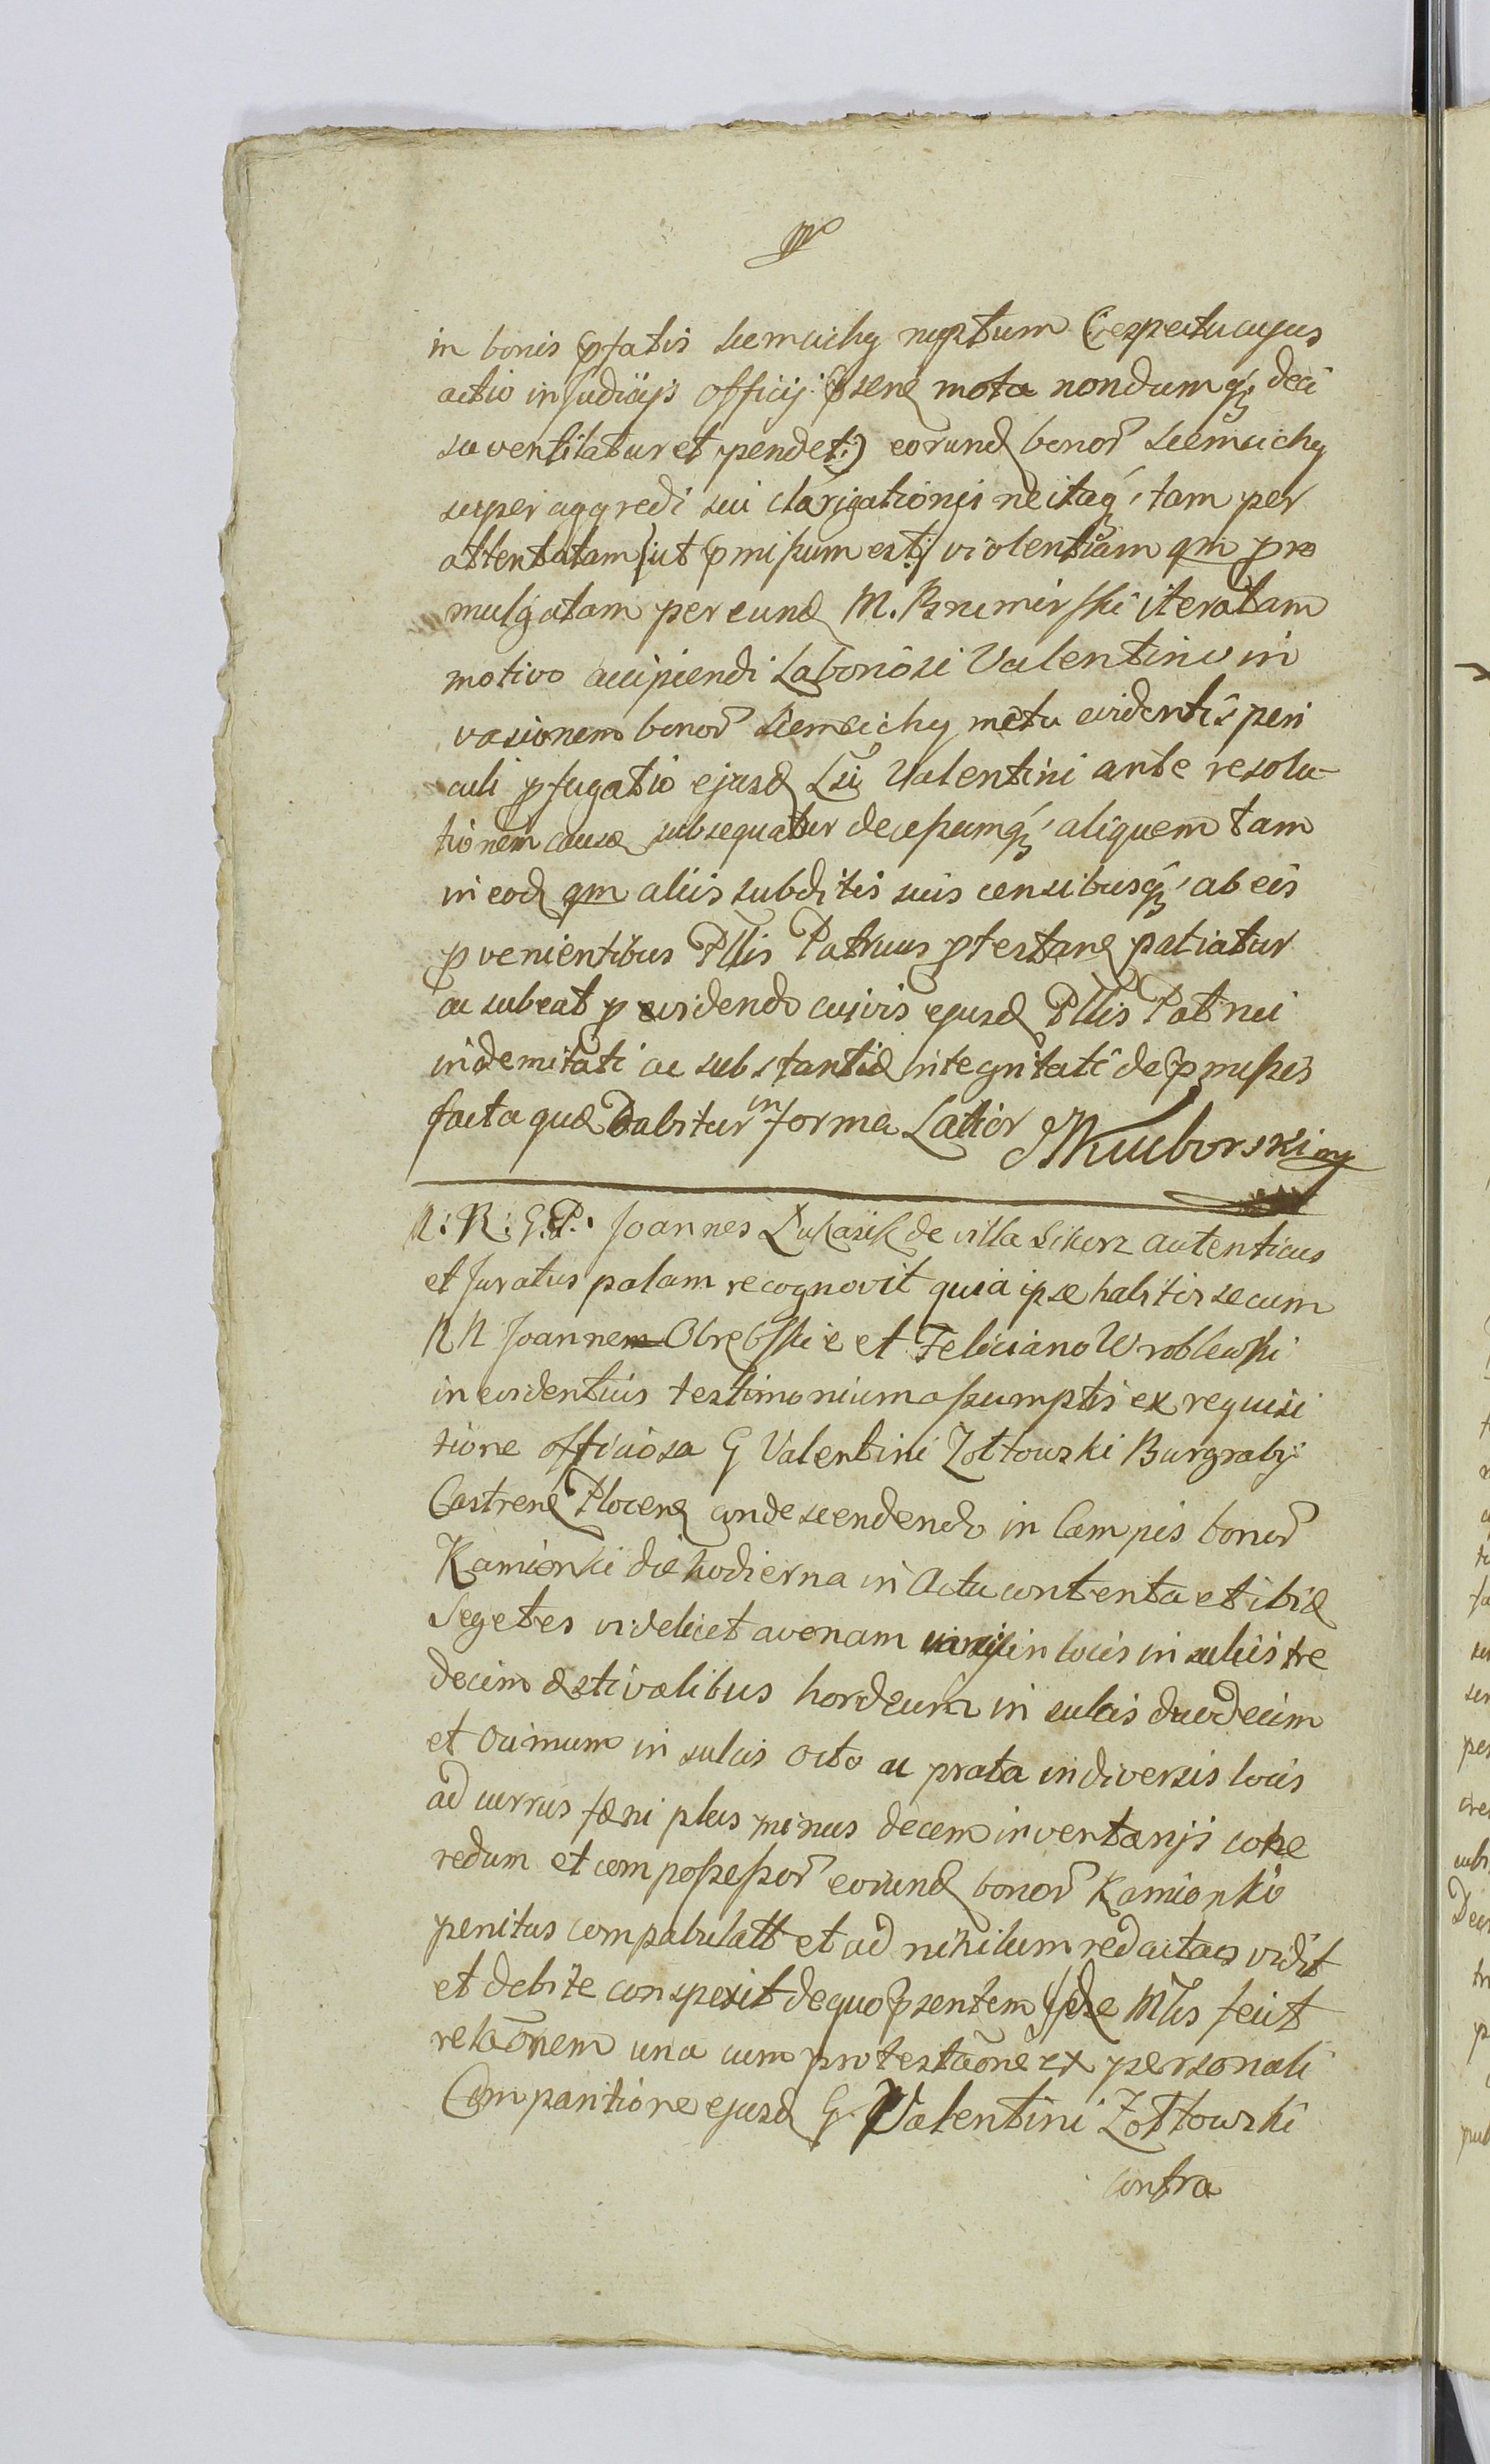 in bonis pfatis Siemichy neptum (respectu cujus
actio in Judicijs Officij psenẹ mota nondumq; deci
sa ventilatur et pendet:) eorund bonor Siemichy
super aggredi sui clarigationis ne itaq; tam per
attentatam (ut pmissum est:) violentiam qm pro
mulgatam per eund M. Brumirski iteratam
motivo accipiendi Laboriosi Valentini in
vasionem bonor Siemichy metu evidentis peri
culi pfugatio ejusd Lsi Valentini ante resolu-
tionem causæ subsequatur decessumq; aliquem tam
in eod qm aliis subditis suis censibusq; ab eis
pvenientibus Pllis Patruus ptestans patiatur
ac subeat pvidendo cujvis ejusd Pllis Patrui
indemitati ac substantiæ integritati de pmissis
facta quæ Dabitur in forma Latior Kuiborski mp
N: R: G: P: Joannes Łukasik de villa Sikorz autenticus
et Juratus palam recognovit quia ipse habitis secum
NN Joanne Obrębski e et Feliciano Wroblewski
in evidentius testimonium assumptis ex requisi
tione officiosa G Valentini Zołtowski Burgrabij
Castren Plocen condescendendo in Campis bonor
Kamionki die hodierna in Actu contenta et ibid
Segetes videlicet avenam in locis in sulcis tre
decim æstivalibus hordeum in sulcis duodecim
et Ocimum in sulcis octo ac prata in diversis locis
ad currus fæni plus minus decem inventarijs cohe
redum et compossessor eorund bonor Kamionki
penitus compabulatt et ad nihilum redactas vidit
et debite conspexit de quo psentem Idse Mtis fecit
relaōnem una cum protestaōne ex personali
Comparitione ejusd G Valentini Zołtowski
contra